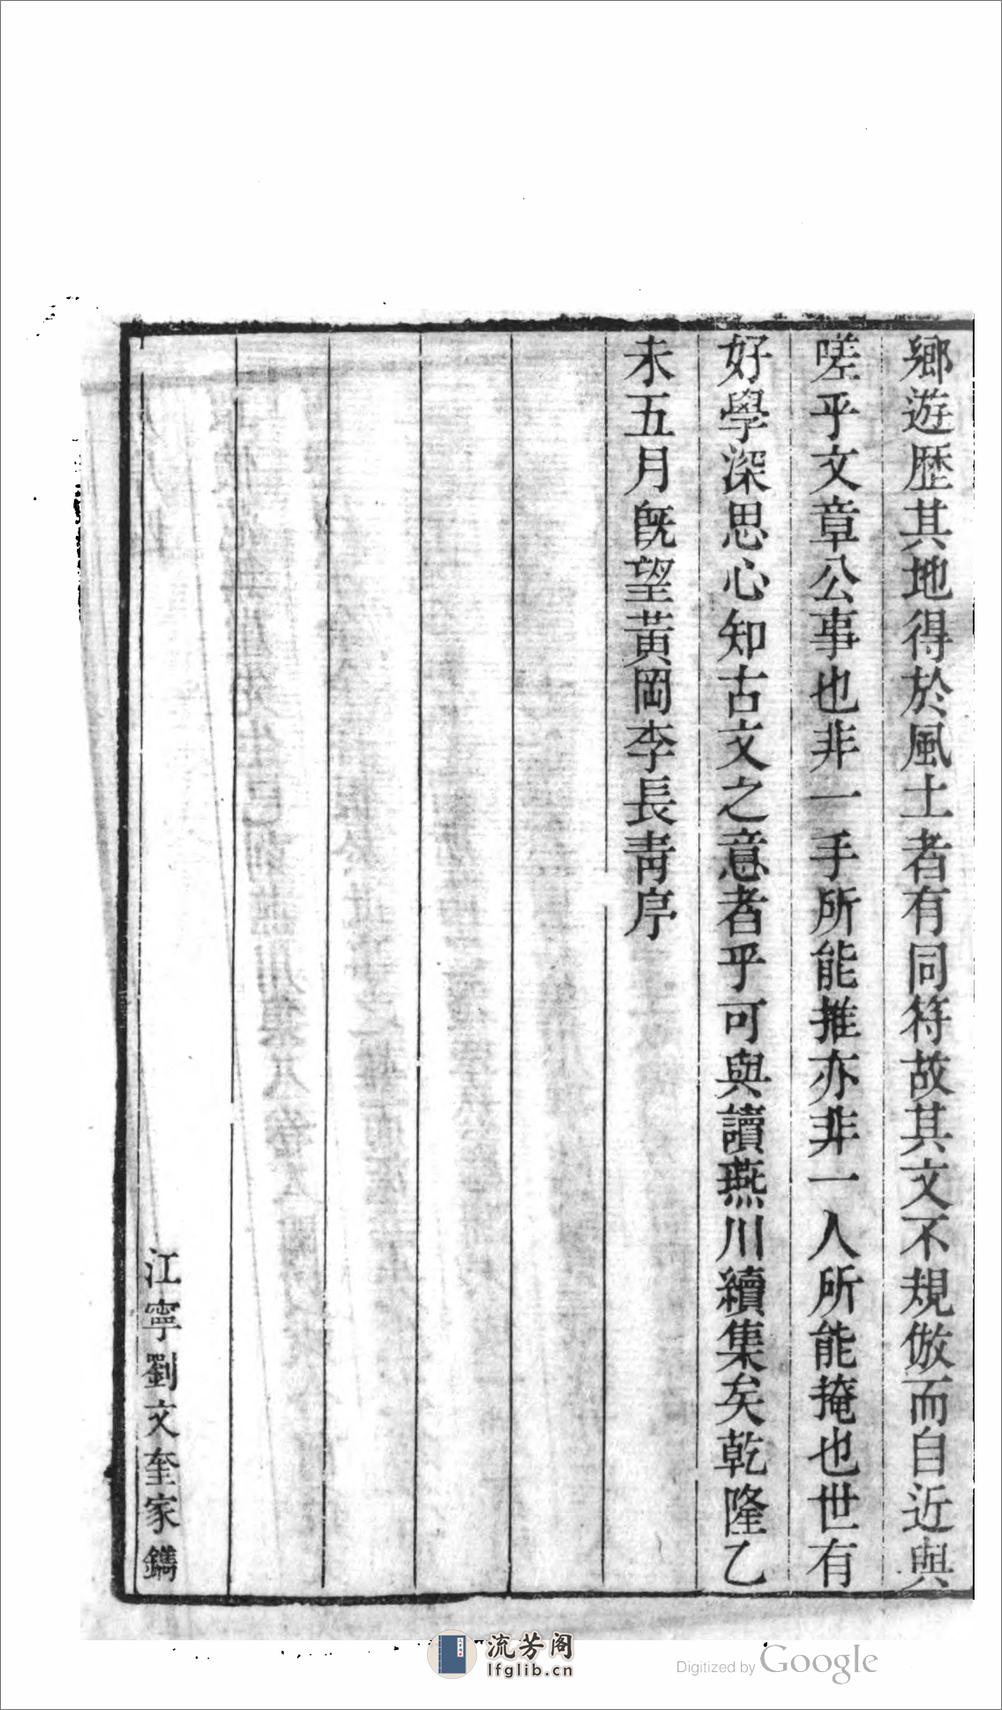 鄉遊歷其地得於風土者有同符故其文不規倣而自近與
嗟乎文章公事也非一手所能推亦非一人所能掩也世有
好學深思心知古文之意者乎可與讀燕川續集矣乾隆乙
未五月旣望黃岡李長靑序
江寧劉文奎家鐫
流芳阁
lfglib.cn
Digitized by Google